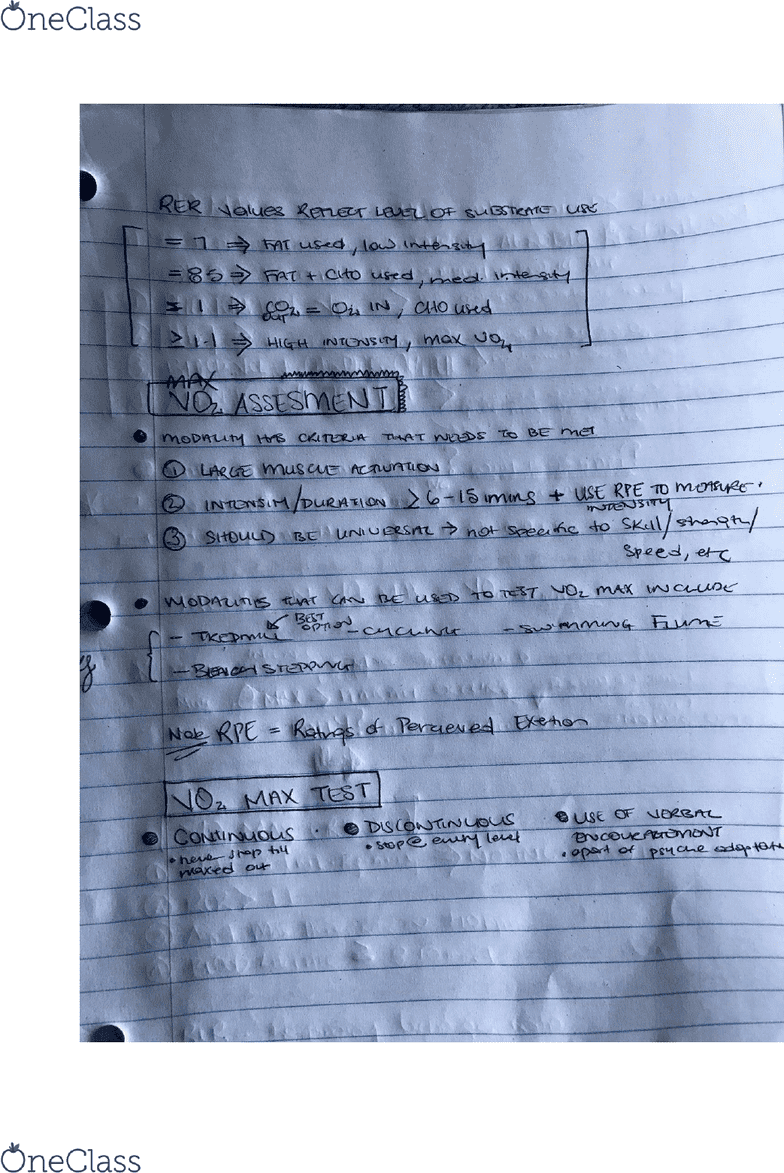 OneClass
RER Values REFLECT LEVEL OF SUBSTRATE USE
= 7 ⇒ FAT used, low intensity
= 85 ⇒ FAT + CHO used, med. intensity
= 1 ⇒ CO2 OUT = O2 IN, CHO used
≥ 1.1 ⇒ HIGH INTENSITY, max VO2
MAX
VO2 ASSESMENT
• MODALITY HAS CRITERIA THAT NEEDS TO BE MET
① LARGE MUSCLE ACTIVATION
② INTENSITY/DURATION ≥ 6-15 mins + USE RPE TO MEASURE
INTENSITY
③ SHOULD BE UNIVERSAL → not specific to skill/strength/
speed, etc
• MODALITIES THAT CAN BE USED TO TEST VO2 MAX INCLUDE
- TREDMILL BEST OPTION - CYCLING - SWIMMING FLUME
- BENCH STEPPING
Note RPE = Ratings of Percieved Exertion
VO2 MAX TEST
• CONTINUOUS • DISCONTINUOUS • USE OF VERBAL
ENCOURAGEMENT
• never stop till • stop @ every level • apart of psyche
maxed out
OneClass